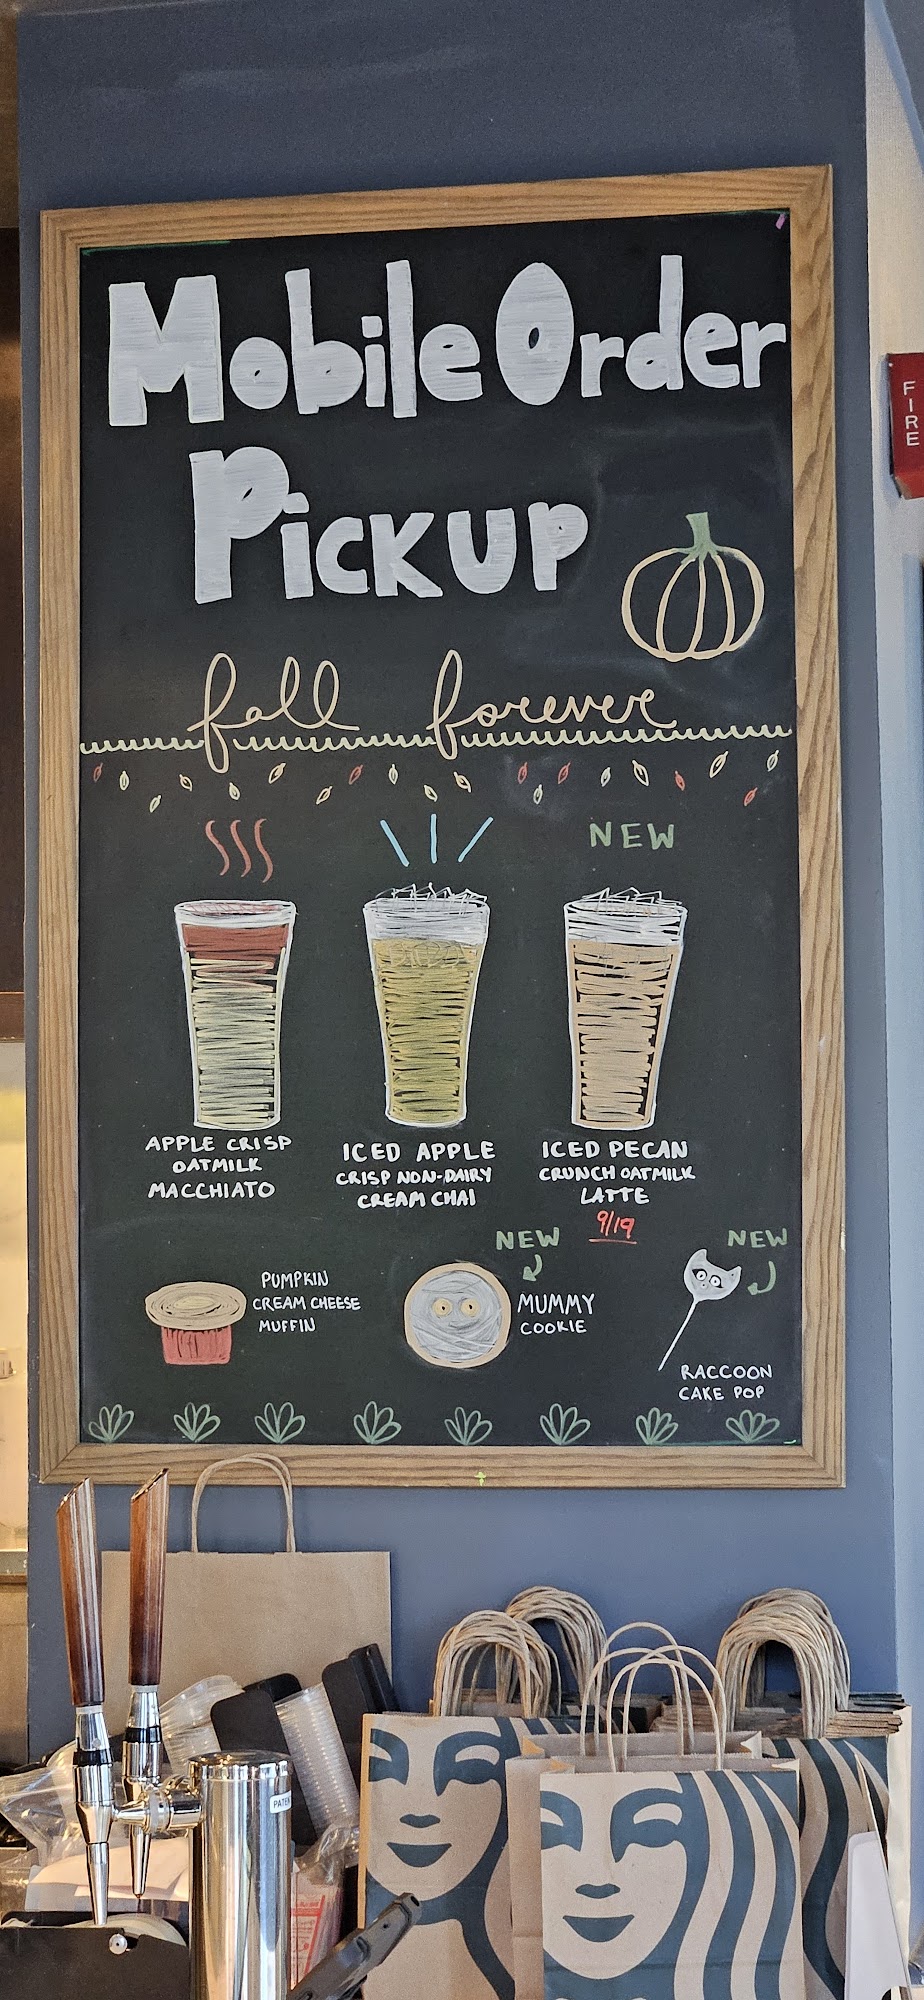 Mobile Order
Pickup
fall forever
NEW
APPLE CRISP
OATMILK
MACCHIATO
ICED APPLE
CRISP NON-DAIRY
CREAM CHAI
ICED PECAN
CRUNCH OATMILK
LATTE
9/19
PUMPKIN
CREAM CHEESE
MUFFIN
NEW
MUMMY
COOKIE
NEW
RACCOON
CAKE POP
FIRE